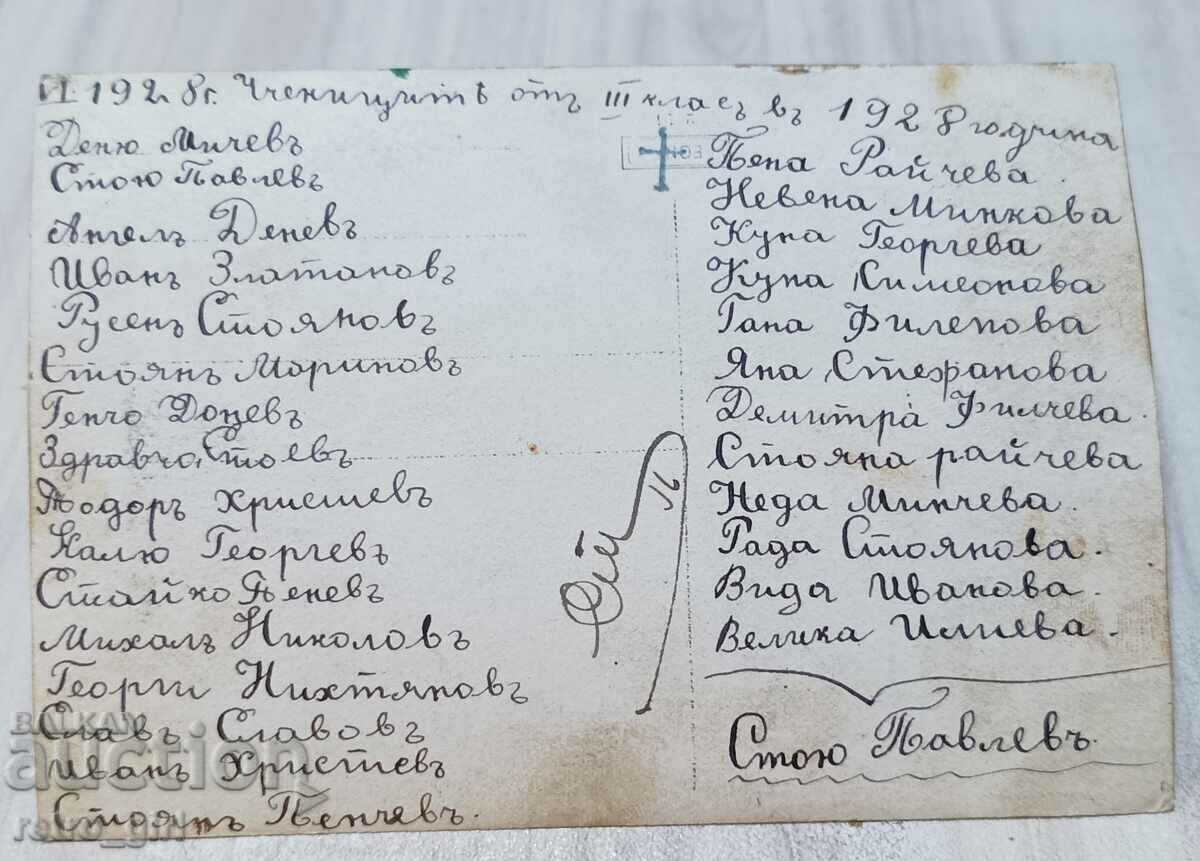 VI 1928 г. Ученицитѣ отъ III класъ въ 1928 година
Деню Мичевъ
Стою Павлевъ
Ангелъ Деневъ
Иванъ Златановъ
Русенъ Стояновъ
Стоянъ Мариновъ
Генчо Доневъ
Здравчо Стоевъ
Тодоръ Христевъ
Калю Георгевъ
Стайко Пеневъ
Михалъ Николовъ
Георги Нихтяновъ
Славъ Славовъ
Иванъ Христевъ
Стоянъ Пенчевъ.
Пена Райчева.
Невена Минкова
Куна Георгева
Куна Симеонова
Гана Филепова
Яна Стефанова
Демитра Филчева.
Стояна райчева
Неда Минчева.
Рада Стоянова.
Вида Иванова.
Велика Илиева.
Стою Павлевъ.
16
BALKAN
auction
retro_girl